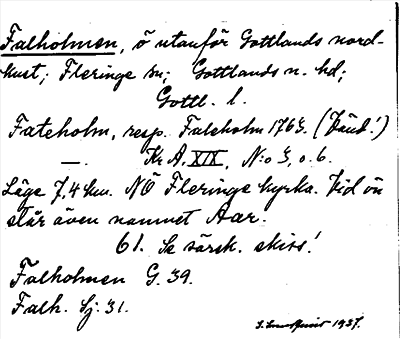 Falholmen, ö utanför Gottlands nord-
kust; Fleringe sn; Gottlands n. hd;
Gottl. l.
Fateholm, resp. Faleholm 1763. (Vänd!)
—. Kr A, XIX, N:o 3, o. 6.
Läge 7,4 km. NÖ Fleringe kyrka. Vid ön
står även namnet Aar.
61. Se särsk. skiss!
Falholmen G. 39.
Falh. Sj: 31.
1937.